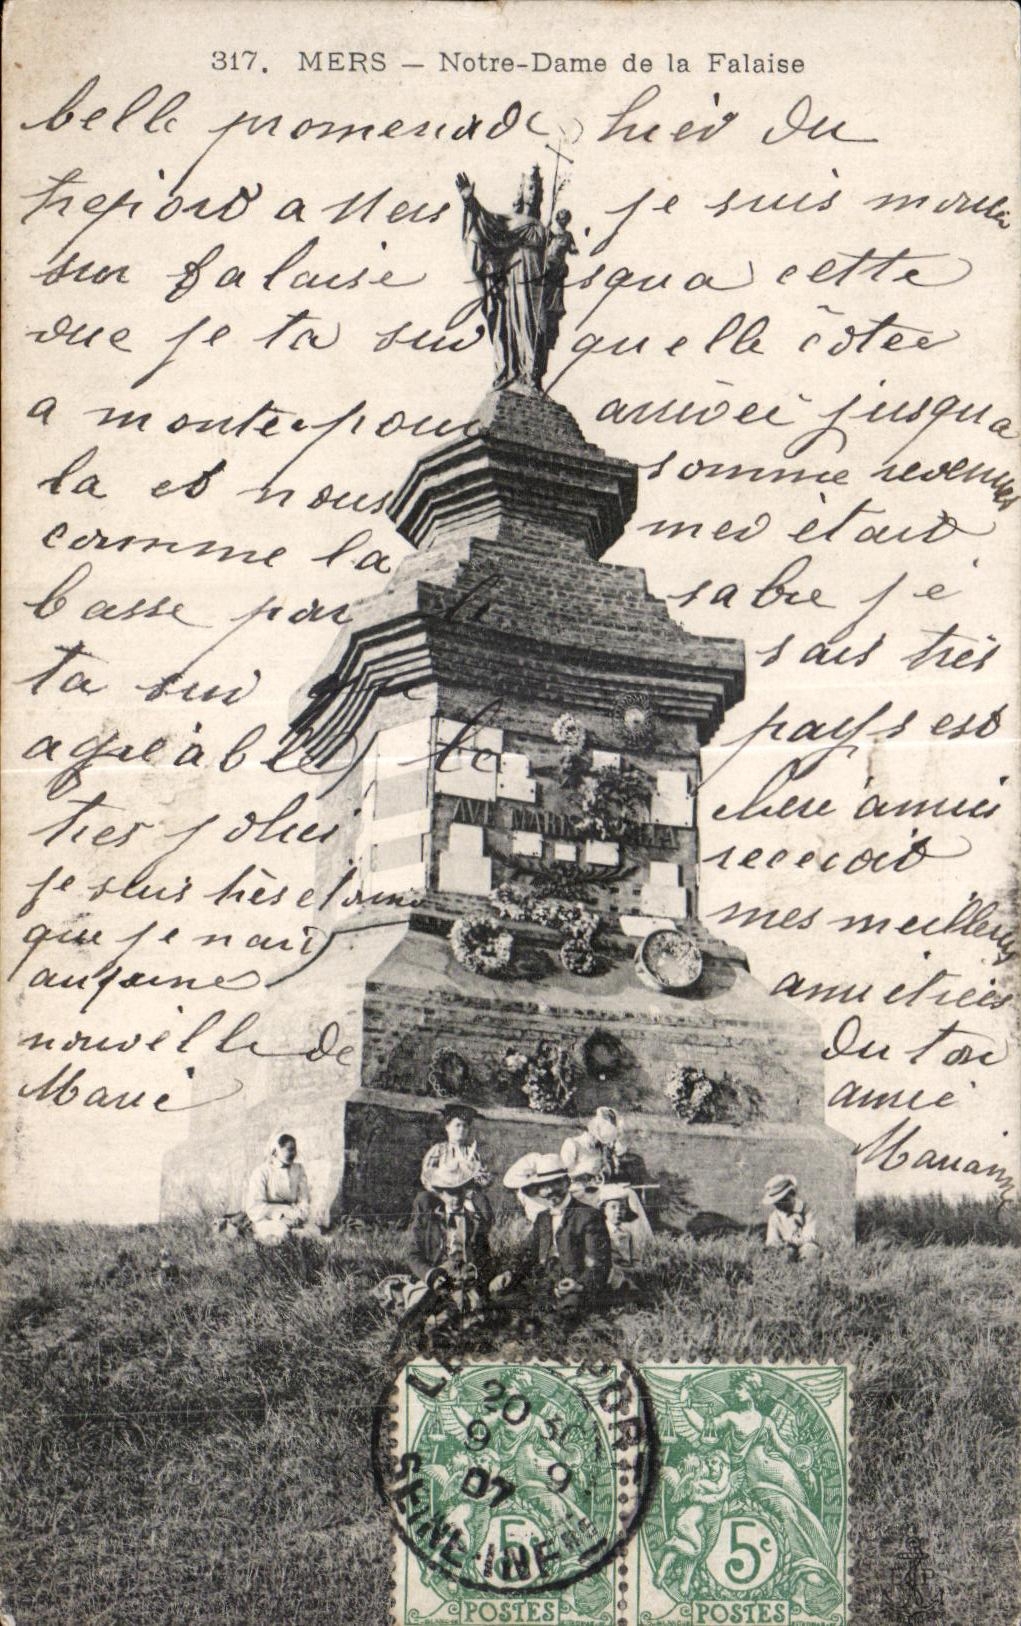 317. MERS — Notre-Dame de la Falaise
belle promenade hier du
treport a Mers je suis monté
sur falaise jusqua cette
vue je ta sur quelle côtee
a monte pour arrivée jusqua
la et nous somme revenues
comme la mer était
basse par le sable je
ta sur que sais très
agréable le pays est
tres jolie chere amie
je suis très etonné recevoit
que je nait mes meilleurs
aucune amietiées
nouvelle de du ton
Marie amie
Marianne
AVE MARIS STELLA
LE TREPORT
20 30
9 9
07
SEINE-INFRE
5c 5c
POSTES POSTES